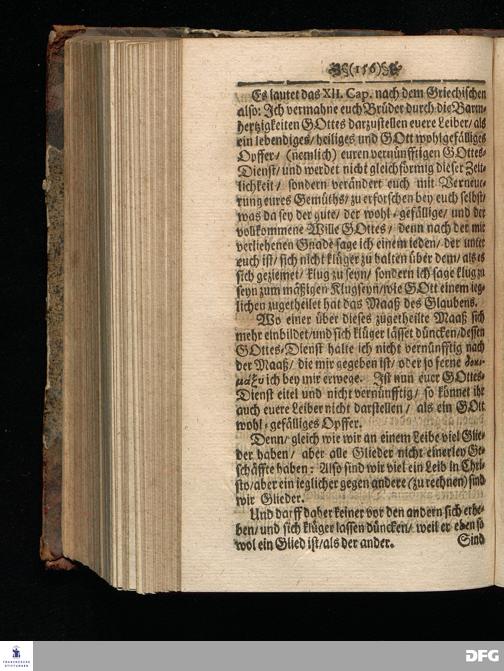 (156)
Es lautet das XII. Cap. nach dem Griechischen
also: Jch vermahne euch Brüder durch die Barm-
hertzigkeiten GOttes darzustellen euere Leiber/ als
ein lebendiges/ heiliges und GOtt wohlgefälliges
Opffer/ (nemlich) euren vernünfftigen GOttes-
Dienst/ und werdet nicht gleichförmig dieser Zeit-
lichkeit/ sondern verändert euch mit Verneue-
rung eures Gemüths/ zu erforschen bey euch selbst/
was da sey der gute/ der wohl-gefällige/ und der
vollkommene Wille GOttes/ denn nach der mir
verliehenen Gnade sage ich einem ieden/ der unter
euch ist/ sich nicht klüger zu halten über dem/ als es
sich geziemet/ klug zu seyn/ sondern ich sage klug zu
seyn zum mäßigen Klugseyn/ wie GOtt einem ieg-
lichen zugetheilet hat das Maaß des Glaubens.
Wo einer über dieses zugetheilte Maaß sich
mehr einbildet/ und sich klüger lässet düncken/ dessen
GOttes-Dienst halte ich nicht vernünfftig nach
der Maaß/ die mir gegeben ist/ oder so ferne δοκι-
μάζω ich bey mir erwege. Jst nun euer GOttes-
Dienst eitel und nicht vernünfftig/ so könnet ihr
auch euere Leiber nicht darstellen/ als ein GOtt
wohl-gefälliges Opffer.
Denn/ gleich wie wir an einem Leibe viel Glie-
der haben/ aber alle Glieder nicht einerley Ge-
schäffte haben: Also sind wir viel ein Leib in Chri-
sto/ aber ein ieglicher gegen andere (zu rechnen) sind
wir Glieder.
Und darff daher keiner vor den andern sich erhe-
ben/ und sich klüger lassen düncken/ weil er eben so
wol ein Glied ist/ als der ander.
Sind
FRANCKESCHE
STIFTUNGEN
DFG